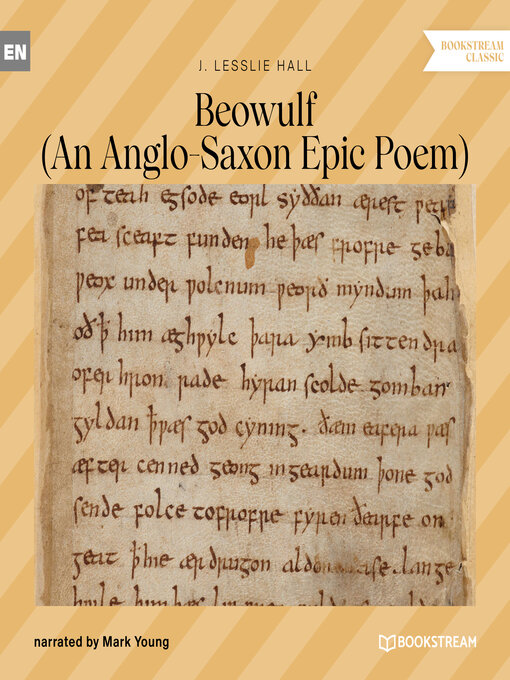 EN
BOOKSTREAM
CLASSIC
J. LESSLIE HALL
Beowulf
(An Anglo-Saxon Epic Poem)
of teah egsode eorl syððan ærest ƿear
fea sceaft funden he þæs frofre geba
ƿeox under ƿolcnum ƿeorð myndum þah
oð ꝥ him æghƿylc þara ymb sittendra
ofer hron rade hyran scolde gomban
gyldan ꝥ ƿæs god cyning. ðæm eafera ƿæs
æfter cenned geong in geardum þone god
sende folce to frofre fyren ðearfe on
geat ꝥ hie ær drugon aldor ase. lange
hƿile him
narrated by Mark Young
BOOKSTREAM